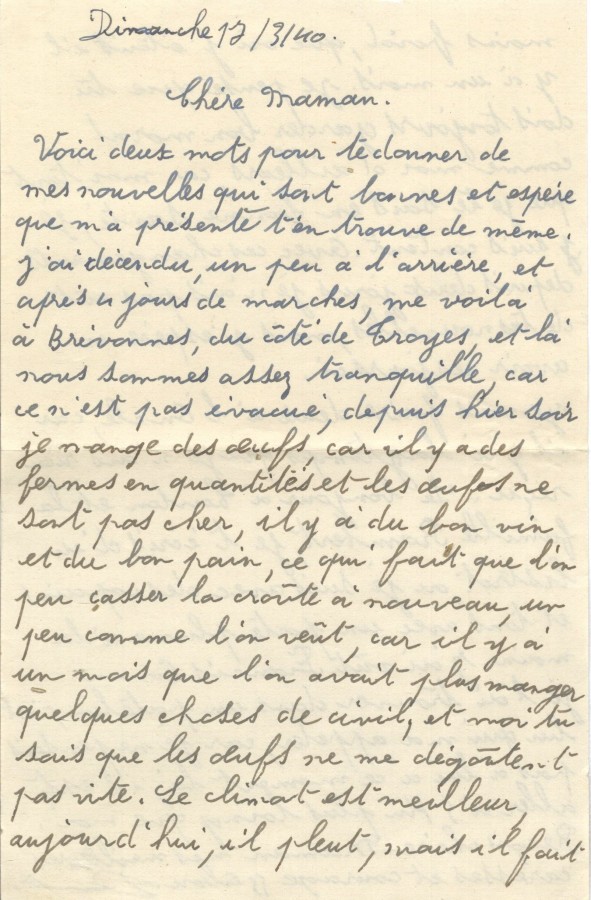 Dimanche 17/3/40.
Chère Maman.
Voici deux mots pour te donner de
mes nouvelles qui sont bonnes et espère
que m'a présente t'en trouve de même.
J'ai décendu, un peu à l'arrière, et
après 4 jours de marches, me voilà
à Brévonnes, du côté de Troyes, et là
nous sommes assez tranquille, car
ce n'est pas évacué, depuis hier soir
je mange des œufs, car il y a des
fermes en quantités et les œufs ne
sont pas cher, il y à du bon vin
et du bon pain, ce qui fait que l'on
peu casser la croûte à nouveau, un
peu comme l'on veût, car il y à
un mois que l'on avait plus manger
quelques choses de civil, et moi tu
sais que les œufs ne me dégoûtent
pas vite. Le climat est meilleur,
aujourd'hui, il pleut, mais il fait